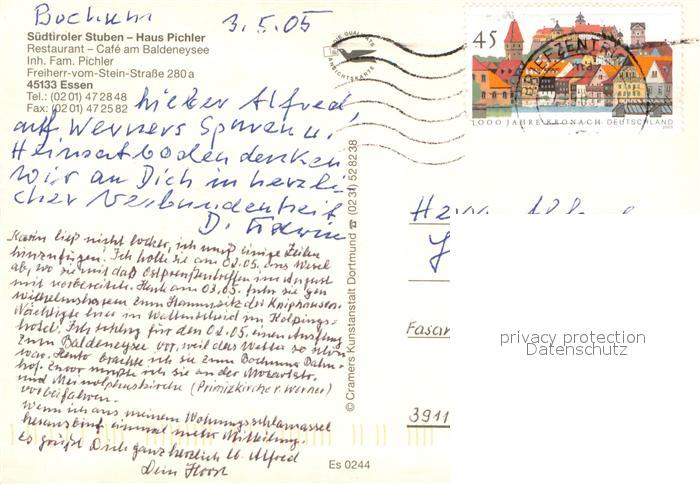 Bochum 3.5.05
Südtiroler Stuben – Haus Pichler
Restaurant – Café am Baldeneysee
Inh. Fam. Pichler
Freiherr-vom-Stein-Straße 280 a
45133 Essen
Tel.: (02 01) 47 28 48
Fax: (02 01) 47 25 82
45
1000 JAHRE KRONACH DEUTSCHLAND
BRIEFZENTRUM
DIE QUALITÄTS
ANSICHTSKARTE
lieber Alfred,
auf Werners Spuren u.
Heimatboden denken
wir an Dich in herzli
cher Verbundenheit
D.
Karin ließ nicht locker, ich muß einige Zeilen
hinzufügen. Ich holte sie am 02.05. aus Wesel
ab, wo sie mit das Ostpreußentreffen im August
mit vorbereitete. Heute am 03.05. fuhr sie gen
Wilhelmshaven zum Stammsitz der Kniphausen.
Nächtigte hier in Wattenscheid im Kolpings-
hotel. Ich schlug für den 02.05. einen Ausflug
zum Baldeneysee vor, weil das Wetter so schön
war. Heute brachte ich sie zum Bochum Bahn-
hof. Zuvor mußte ich sie an der Mozartstr.
und Meinolphuskirche (Primizkirche v. Werner)
vorbeifahren.
Wenn ich aus meinem Wohnungsschlamassel
heraus bin, einmal mehr Mitteilung.
Es grüßt Dich ganz herzlich lb. Alfred
Dein Horst
© Cramers Kunstanstalt Dortmund ☎ (02 31) 52 82 38
Es 0244
Fasan
3911
privacy protection
Datenschutz